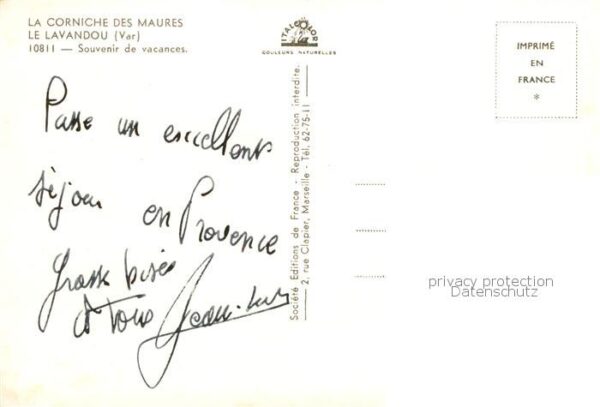 LA CORNICHE DES MAURES
LE LAVANDOU (Var)
10811 — Souvenir de vacances.
ITALCOLOR
COULEURS NATURELLES
IMPRIMÉ
EN
FRANCE
*
Passe un excellent
séjour en Provence
Grosses bises
à Tous Jean-Luc
Société Editions de France - Reproduction interdite.
2, rue Clapier, Marseille - Tél. 62-75-11
privacy protection
Datenschutz